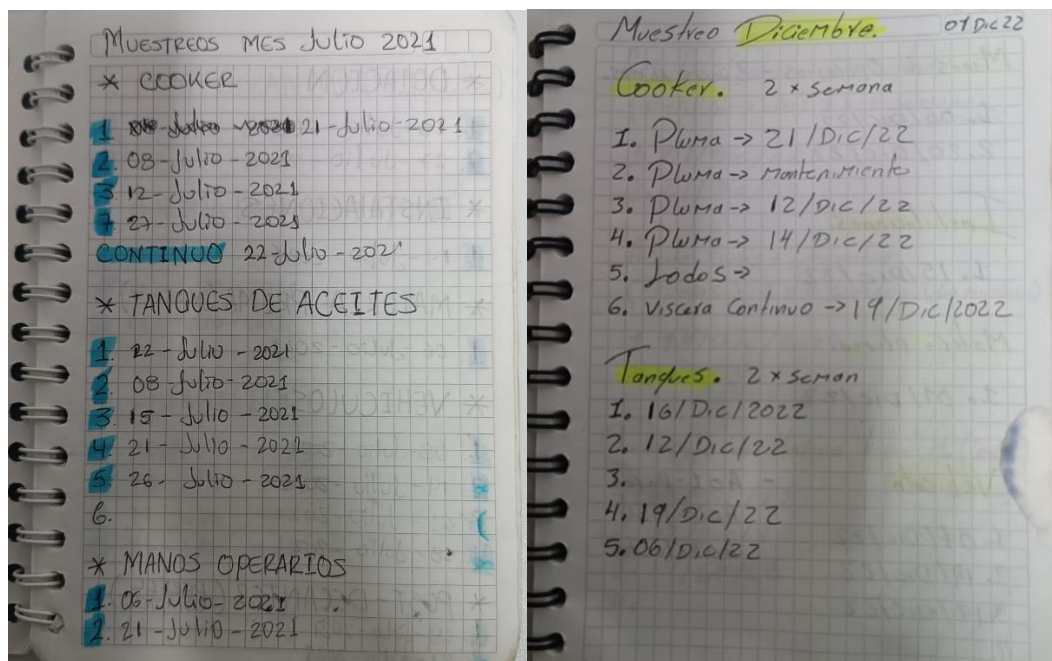 MUESTREOS MES Julio 2021
* COOKER
1. 21-Julio-2021
2. 08-Julio-2021
3. 12-Julio-2021
7. 27-Julio-2021
CONTINUO 22-Julio-202
* TANQUES DE ACEITES
1. 22-Julio-2021
2. 08-Julio-2021
3. 15-Julio-2021
4. 21-Julio-2021
5. 26-Julio-2021
6.
* MANOS OPERARIOS
1. 06-Julio-2021
2. 21-Julio-2021
Muestreo Diciembre. 01 Dic 22
Cooker. 2 x semana
1. Pluma -> 21/Dic/22
2. Pluma -> Mantenimiento
3. Pluma -> 12/Dic/22
4. Pluma -> 14/Dic/22
5. Lodos ->
6. Viscera Continuo -> 19/Dic/2022
Tanques. 2 x seman
1. 16/Dic/2022
2. 12/Dic/22
3.
4. 19/Dic/22
5. 06/Dic/22